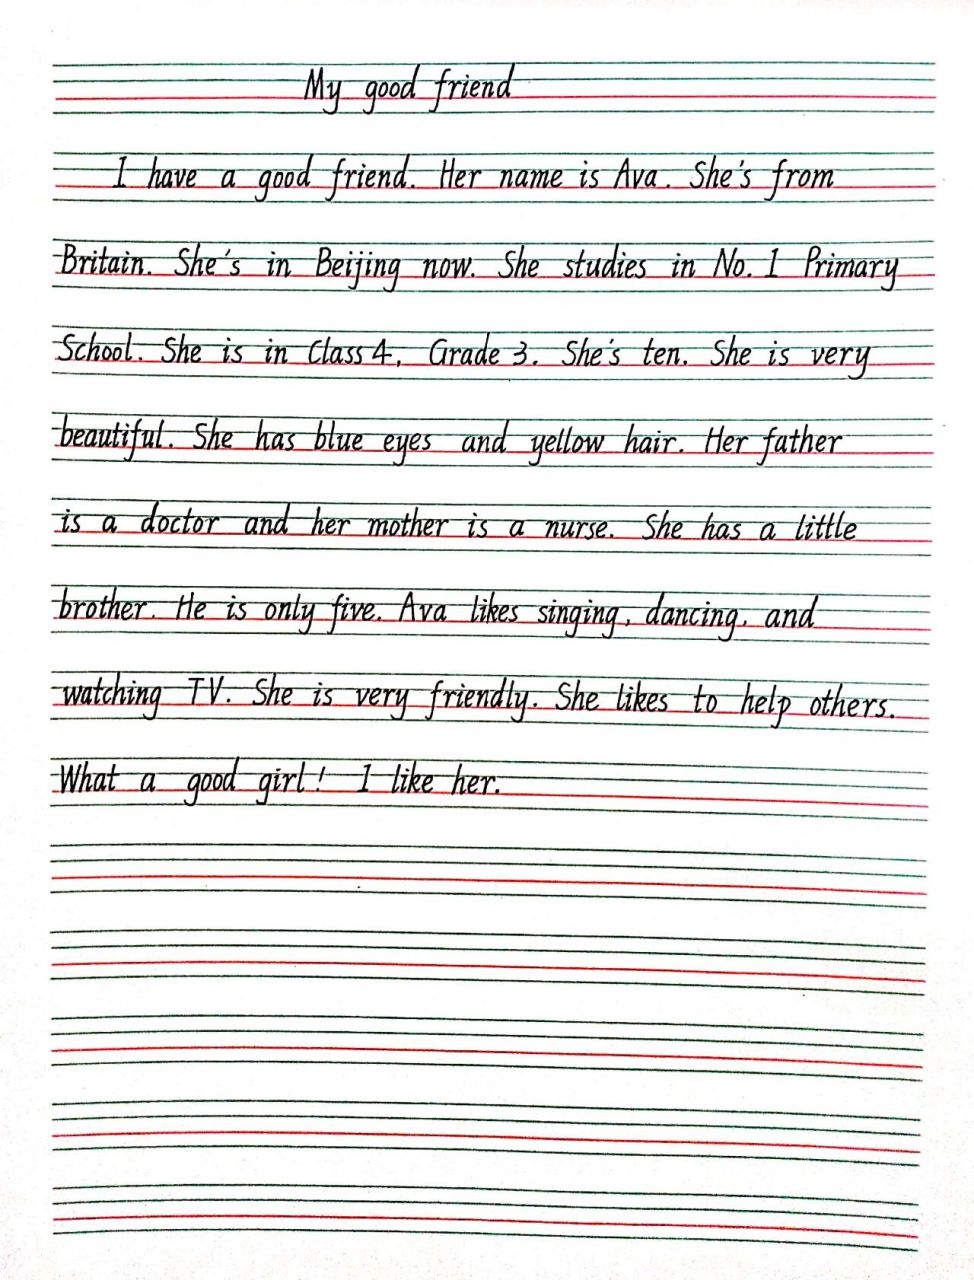 My good friend
I have a good friend. Her name is Ava. She's from
Britain. She's in Beijing now. She studies in No. 1 Primary
School. She is in Class 4, Grade 3. She's ten. She is very
beautiful. She has blue eyes and yellow hair. Her father
is a doctor and her mother is a nurse. She has a little
brother. He is only five. Ava likes singing, dancing, and
watching TV. She is very friendly. She likes to help others.
What a good girl! I like her.